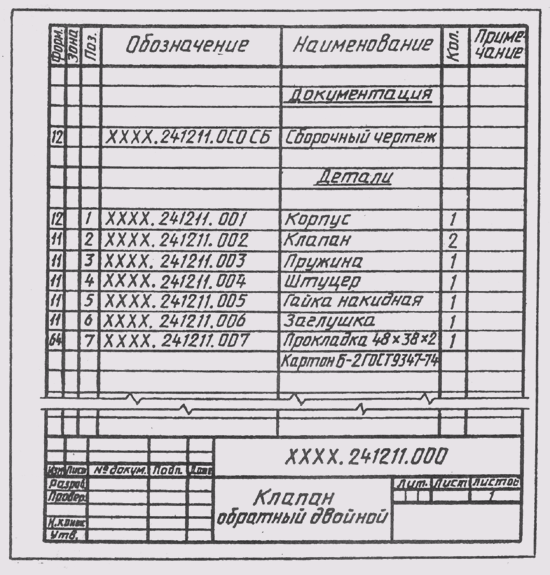 Форм. Зона Поз. Обозначение Наименование Кол. Приме-
чание
Документация
12 XXXX.241211.0C0 СБ Сборочный чертеж
Детали
12 1 XXXX.241211.001 Корпус 1
11 2 XXXX.241211.002 Клапан 2
11 3 XXXX.241211.003 Пружина 1
11 4 XXXX.241211.004 Штуцер 1
11 5 XXXX.241211.005 Гайка накидная 1
11 6 XXXX.241211.006 Заглушка 1
64 7 XXXX.241211.007 Прокладка 48×38×2 1
Картон Б-2 ГОСТ 9347-74
XXXX.241211.000
Изм Лист № докум. Подп. Дата
Разраб.
Провер.
Н.контр.
Утв.
Клапан
обратный двойной
Лит. Лист Листов
1